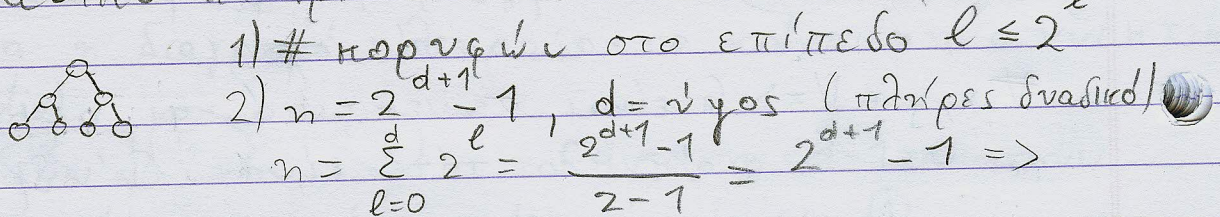 1) # κορυφών στο επίπεδο l ≤ 2^l
2) n = 2^{d+1} - 1, d = ύψος (πλήρες δυαδικό)
n = \sum_{l=0}^{d} 2^l = \frac{2^{d+1} - 1}{2 - 1} = 2^{d+1} - 1 =>